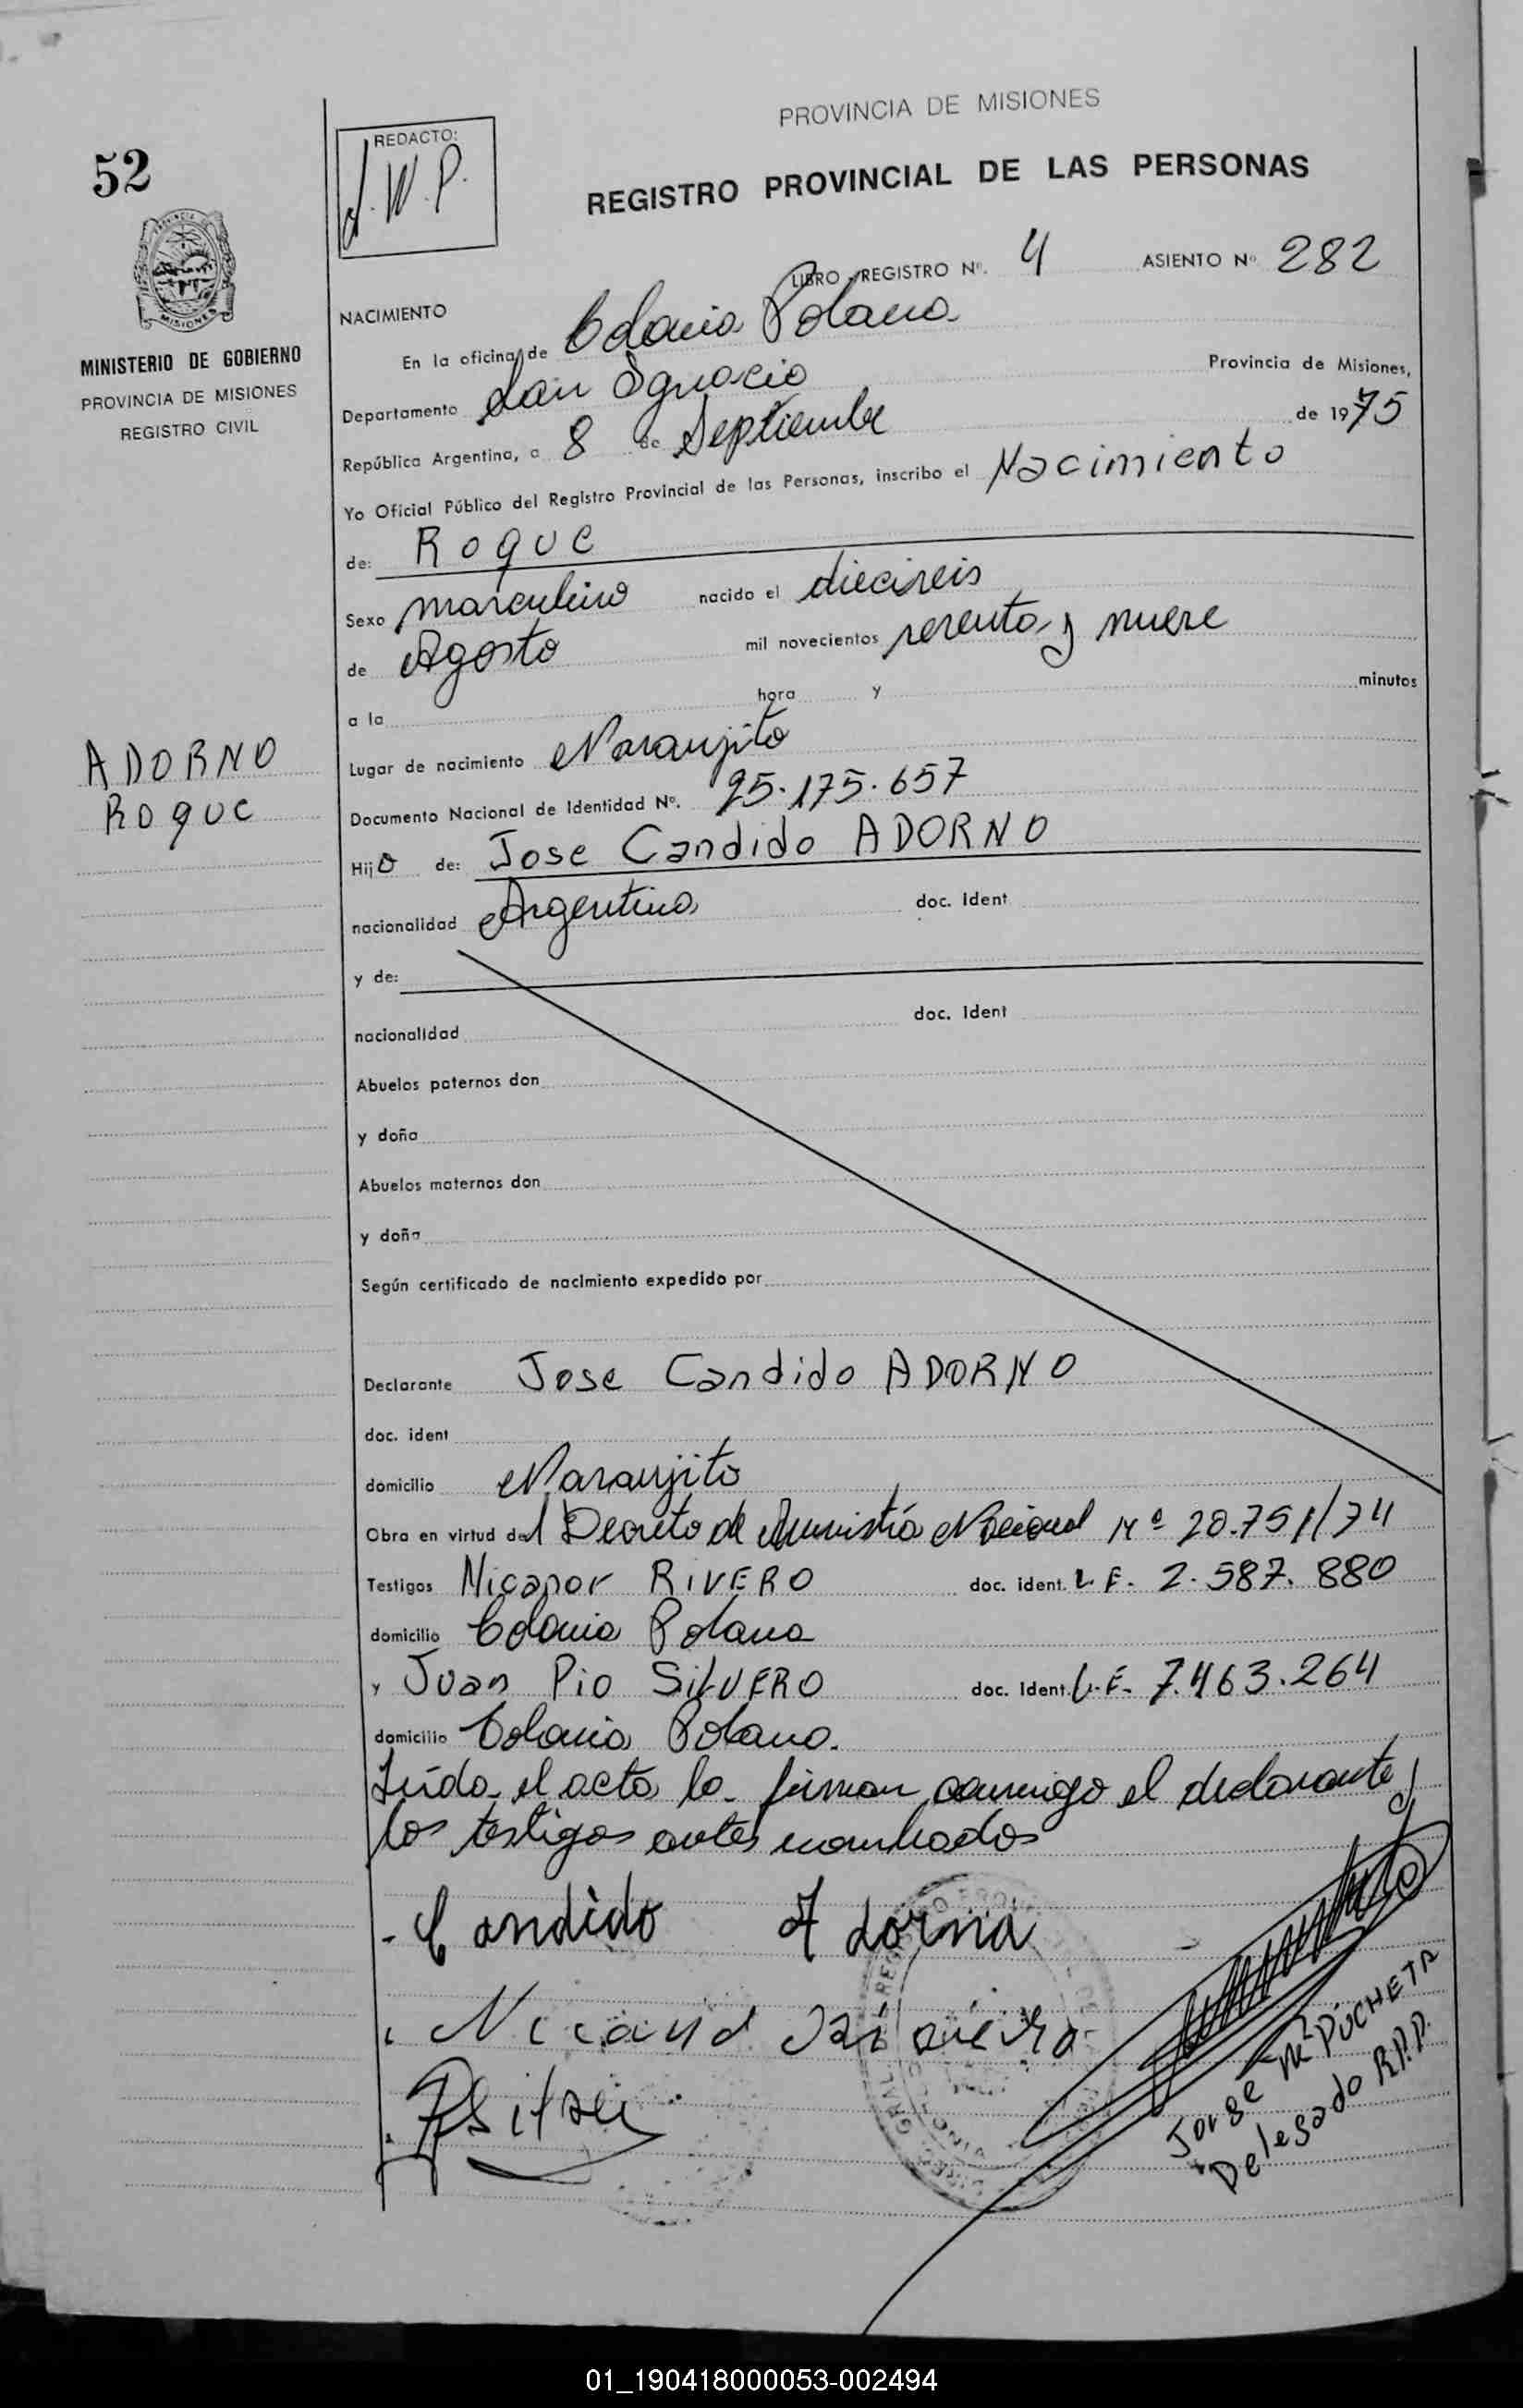 PROVINCIA DE MISIONES
52
REDACTO:
J.W.P.
REGISTRO PROVINCIAL DE LAS PERSONAS
LIBRO - REGISTRO Nº. 4 ASIENTO Nº 282
NACIMIENTO
MISIONES
En la oficina de Colonia Polana
MINISTERIO DE GOBIERNO
PROVINCIA DE MISIONES
REGISTRO CIVIL
Departamento San Ignacio Provincia de Misiones,
República Argentina, a 8 de Septiembre de 1975
Yo Oficial Público del Registro Provincial de las Personas, inscribo el Nacimiento
de: Roque
Sexo masculino nacido el dieciseis
de Agosto mil novecientos sesenta y nueve
a la hora y minutos
ADORNO
Roque
Lugar de nacimiento Naranjito
Documento Nacional de Identidad Nº. 25.175.657
Hijo de: Jose Candido ADORNO
nacionalidad Argentina doc. Ident
y de:
nacionalidad doc. Ident
Abuelos paternos don
y doña
Abuelos maternos don
y doña
Según certificado de nacimiento expedido por
Declarante Jose Candido ADORNO
doc. ident
domicilio Naranjito
Obra en virtud del Decreto de Amnistía Nacional Nº 20.751/74
Testigos Nicanor RIVERO doc. ident. L.E. 2.587.880
domicilio Colonia Polana
y Juan Pio SILVERO doc. Ident. L.E. 7.463.264
domicilio Colonia Polana.
Leída el acta la firman conmigo el declarante y
los testigos antes nombrados
- Candido Adorna
Jorge Mª PUCHETA
Delegado R.P.P.